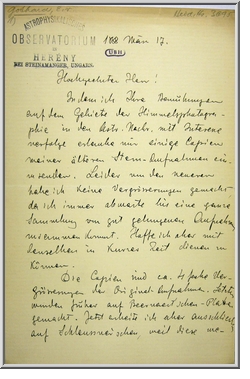 ASTROPHYSIKALISCHES
OBSERVATORIUM
HERÉNY
BEI STEINAMANGER, UNGARN.
188 März 17.
Hochgeehrter Herr!
Indem ich Ihre Bemühungen
auf dem Gebiete der Himmelsphotogra-
phie in den Astr. Nachr. mit Interesse
verfolge erlaube mir einige Copien
meiner älteren Stern-Aufnahmen ein-
zusenden. Leider von den neueren
habe ich keine Vergrösserungen gemacht
da ich immer abwarte bis eine ganze
Sammlung von gut gelungenen Aufnahmen
zusammen kommt. Hoffe ich aber mit
denselben in kurzer Zeit dienen zu
können.
Die Copien sind ca. fache Ver-
grösserungen der Original-Aufnahme. Letztere
wurden früher auf Beernaert'schen-Platten
gemacht. Jetzt arbeite ich aber ausschliesslich
auf Schleussner'schen, weil diese